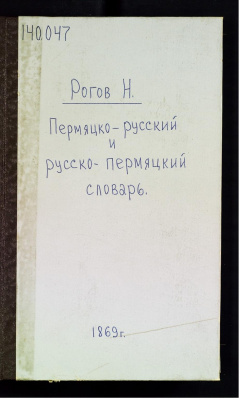 140.047
Рогов Н.
Пермяцко-русский
и
русско-пермяцкий
словарь.
1869г.